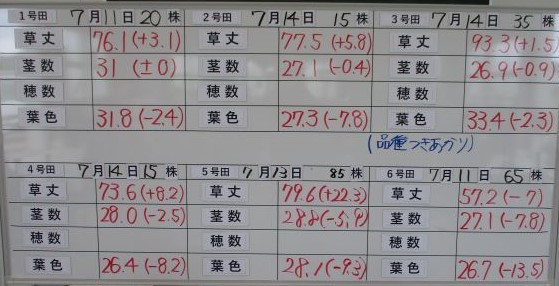 1号田 7月11日 20株 2号田 7月14日 15株 3号田 7月14日 35株
草丈 76.1(+3.1) 草丈 77.5(+5.8) 草丈 93.3(+1.5)
茎数 31(±0) 茎数 27.1(-0.4) 茎数 26.9(-0.9)
穂数 穂数 穂数
葉色 31.8(-2.4) 葉色 27.3(-7.8) 葉色 33.4(-2.3)
(品種つきあかり)
4号田 7月14日 15株 5号田 7月13日 85株 6号田 7月11日 65株
草丈 73.6(+8.2) 草丈 79.6(+22.3) 草丈 57.2(-7)
茎数 28.0(-2.5) 茎数 28.8 茎数 27.1(-7.8)
穂数 穂数 穂数
葉色 26.4(-8.2) 葉色 28.1(-9.3) 葉色 26.7(-13.5)